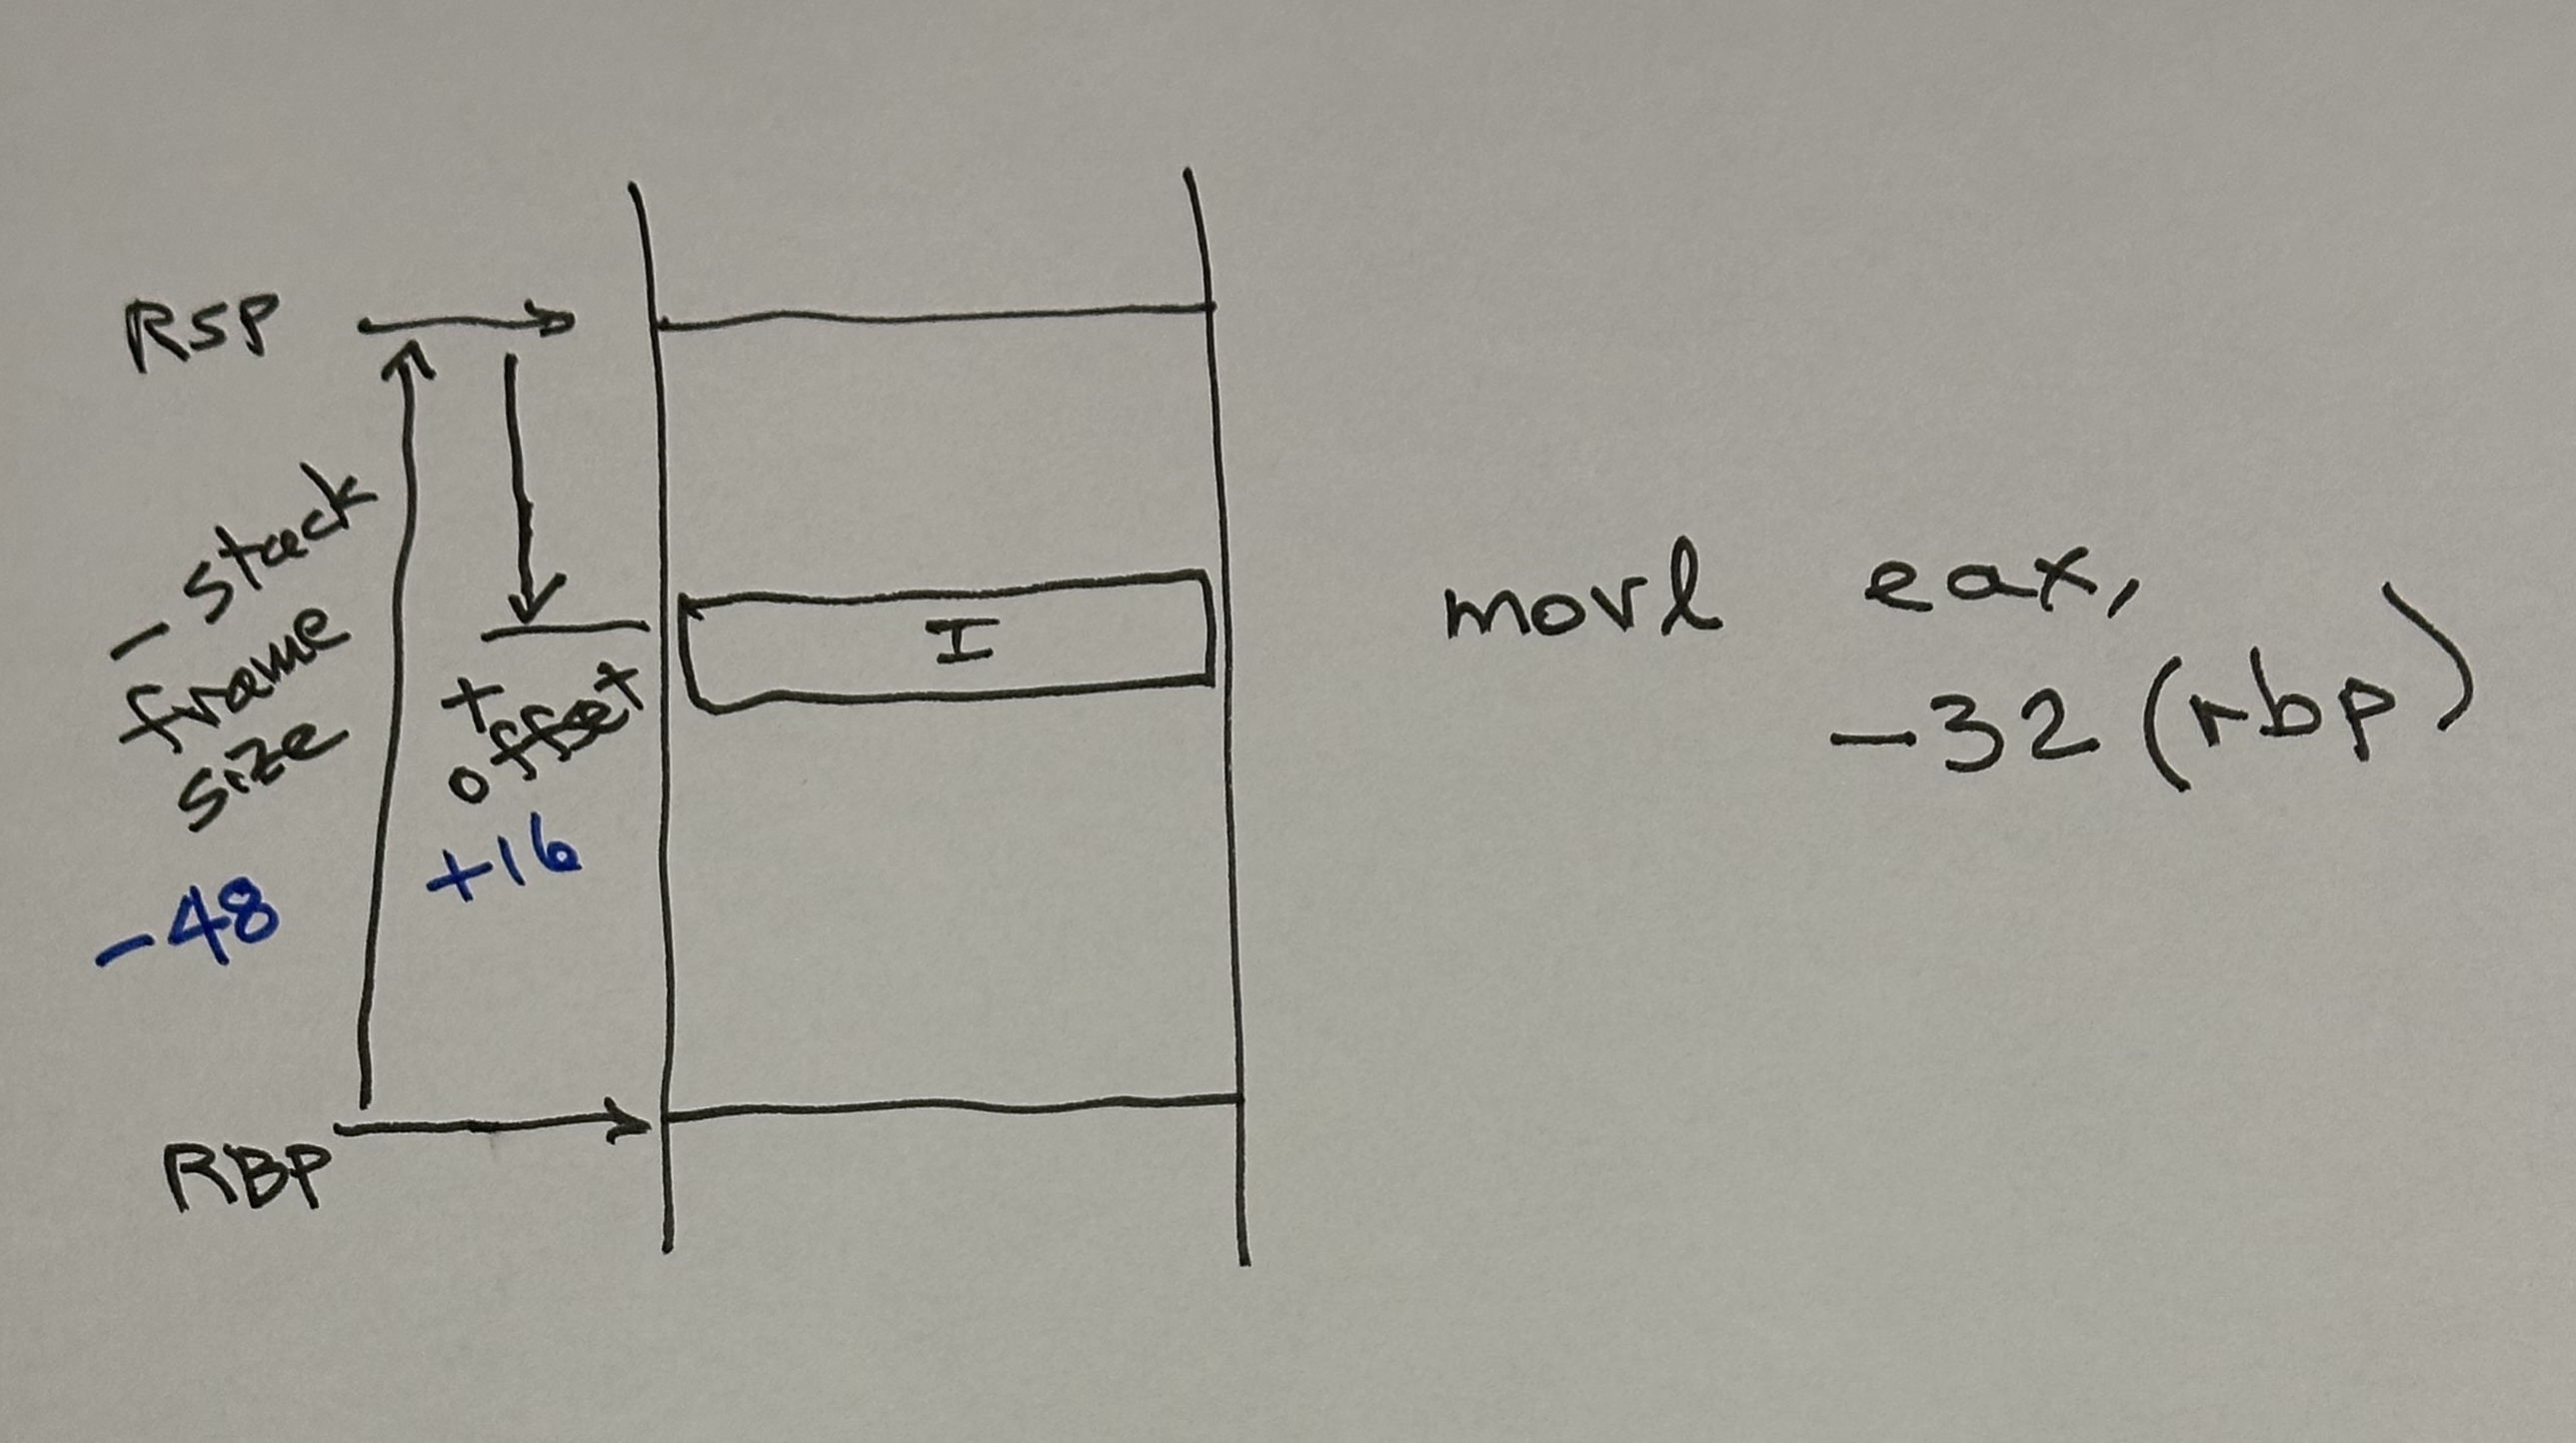 RSP
- stack
frame
size
-48
+
offset
+16
I
RBP
movl eax,
-32(rbp)